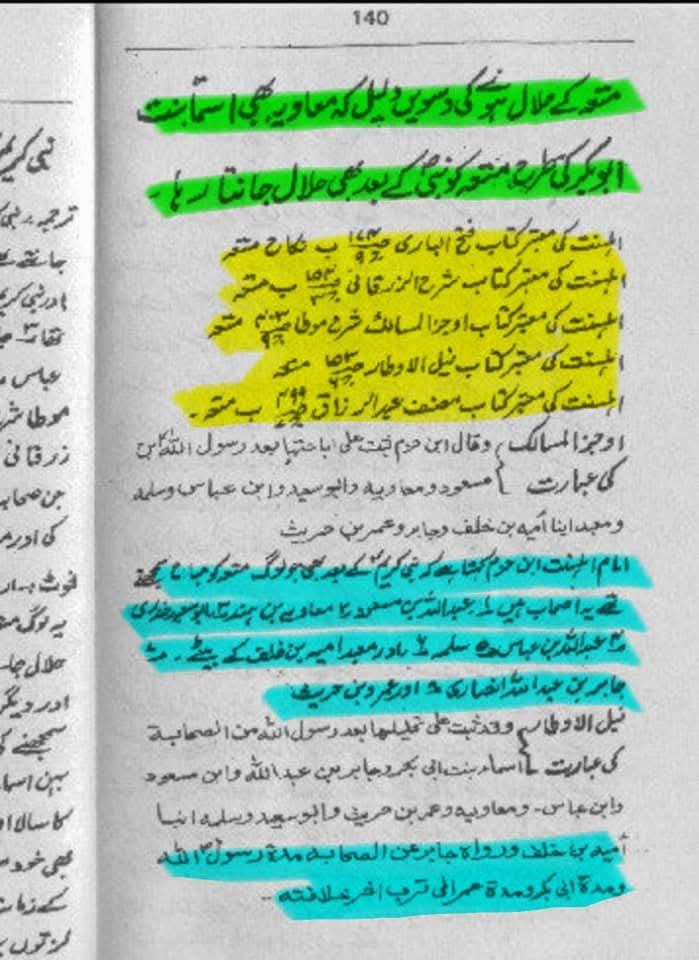 140
متعہ کے حلال ہونے کی دسویں دلیل کہ معاویہ بھی اسما بنت
ابوبکر کی طرح متعہ کو نبیؐ کے بعد بھی حلال جانتا رہا۔
اہلسنت کی معتبر کتاب فتح الباری ص ۱۷۴ ج ۹ ب نکاح متعہ
اہلسنت کی معتبر کتاب شرح الزرقانی ص ۱۵۴ ج ۳ ب متعہ
اہلسنت کی معتبر کتاب اوجز المسالک شرح موطا ص ۴۰۳ ج ۹ متعہ
اہلسنت کی معتبر کتاب نیل الاوطار ص ۱۵۳ ج ۶ متعہ
اہلسنت کی معتبر کتاب مصنف عبدالرزاق ص ۴۹۹ ج ۷ ب متعہ۔
اوجز المسالک وقال ابن حزم ثبت علی اباحتہا بعد رسول اللہ ابن
کی عبارت مسعود ومعاویہ وابو سعید وابن عباس وسلمہ
ومعبد ابنا أمیہ بن خلف وجابر وعمر بن حریث
امام اہلسنت ابن حزم کہتا ہے کہ نبی کریمؐ کے بعد بھی جو لوگ متعہ کو جائز سمجھتے
تھے یہ اصحاب ہیں ۱۔ عبداللہ بن مسعود ۲ معاویہ بن ہند ۳ ابو سعید خدری
۴ عبداللہ بن عباس ۵ سلمہ ۶ اور معبد امیہ بن خلف کے بیٹے۔ ۷
جابر بن عبداللہ انصاری ۸ اور عمرو بن حریث
نیل الاوطار وقد ثبت علی تحلیلہا بعد رسول اللہ من الصحابۃ
کی عبارت اسماء بنت ابی بکر وجابر بن عبد اللہ وابن مسعود
وابن عباس۔ ومعاویہ وعمر بن حریث وابو سعید وسلمہ ابنا
أمیہ بن خلف ورواہ جابر عن الصحابۃ مدۃ رسول اللہ
ومدۃ ابی بکر ومدۃ عمر الی قرب اخر خلافتہ۔
نبی کریم
ترجمہ۔ نبی
جانتے
اور نبی کریم
عباس
موطا شر
زرقانی
جن صحابہ
کی اور
نوٹ
یہ لوگ
حلال جا
اور دیگر
سمجھنے
بہن اسما
کا سالا
بھی خود
کے زمانہ